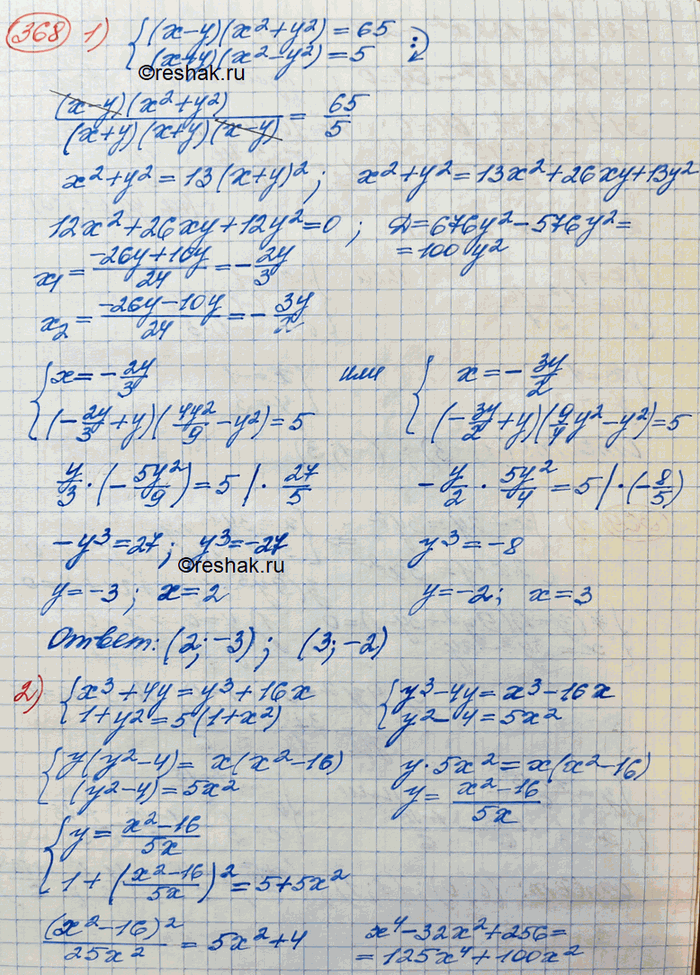 368 1) { (x-y)(x²+y²)=65
(x+y)(x²-y²)=5 :
©reshak.ru
(x-y)(x²+y²) / (x+y)(x+y)(x-y) = 65/5
x²+y²=13(x+y)²; x²+y²=13x²+26xy+13y²
12x²+26xy+12y²=0; D=676y²-576y²=
=100y²
x₁ = (-26y+10y)/24 = -2y/3
x₂ = (-26y-10y)/24 = -3y/2
{ x=-2y/3 или { x=-3y/2
(-2y/3+y)(4y²/9-y²)=5 (-3y/2+y)(9/4y²-y²)=5
y/3·(-5y²/9)=5 |·27/5 -y/2·5y²/4=5 |·(-8/5)
-y³=27; y³=-27 y³=-8
©reshak.ru
y=-3; x=2 y=-2; x=3
Ответ: (2;-3); (3;-2)
2) { x³+4y=y³+16x { y³-4y=x³-16x
1+y²=5(1+x²) y²-4=5x²
{ y(y²-4)=x(x²-16) y·5x²=x(x²-16)
(y²-4)=5x² y=(x²-16)/5x
{ y=(x²-16)/5x
1+((x²-16)/5x)²=5+5x²
(x²-16)²/25x²=5x²+4 x⁴-32x²+256=
=125x⁴+100x²